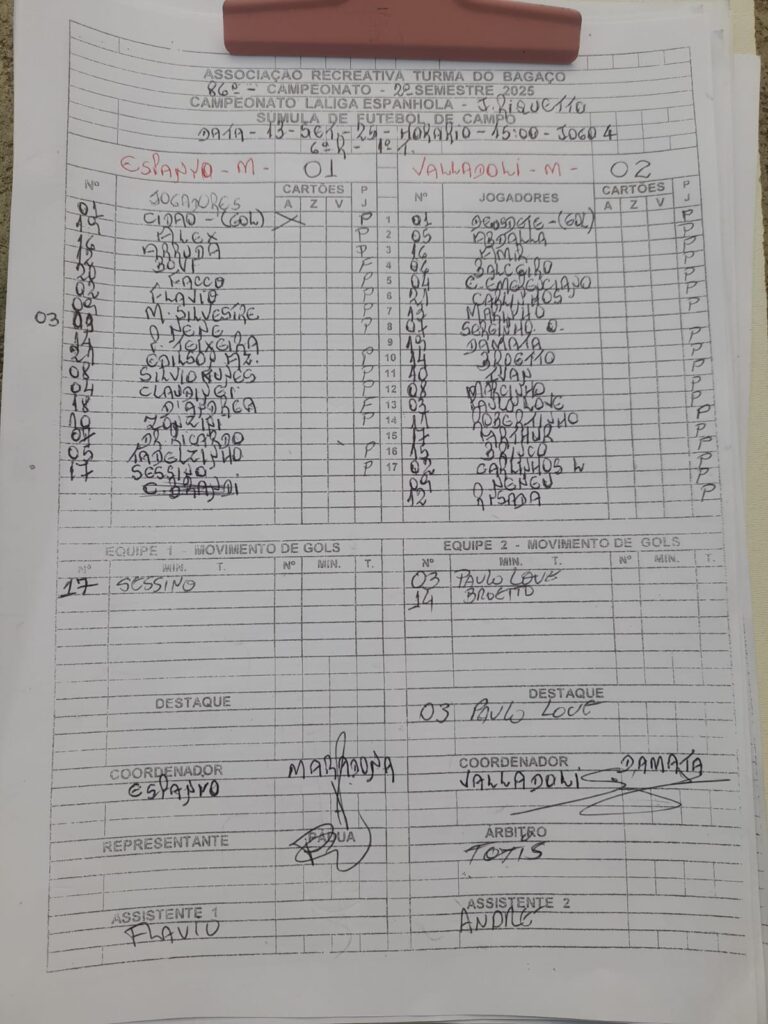 ASSOCIAÇÃO RECREATIVA TURMA DO BAGAÇO
86º - CAMPEONATO - 2º SEMESTRE 2025
CAMPEONATO LALIGA ESPANHOLA - J. RIQUETTO
SÚMULA DE FUTEBOL DE CAMPO
DATA - 13 - SET - 25 - HORÁRIO - 15:00 - JOGO 4
6ª R - 1º T.
ESPANYO - M - 01 VALLADOLI - M - 02
Nº JOGADORES CARTÕES P J Nº JOGADORES CARTÕES P J
A Z V A Z V
01 CIDÃO - (GOL) X P 1 01 DEOSDETE - (GOL) P
19 ALEX P 2 05 ABDALLA P
16 ARRUDA P 3 16 AMIR P
F 4 06 BALCEIRO P
FACCO P 5 04 C. EMERENCIANO P
FLAVIO P 6 21 CARLINHOS P
M. SILVESTRE P 7 13 MARINHO P
03 NENE P 8 07 SERGINHO O.
14 P. TEIXEIRA 9 19 DAMATA P
21 EDILSON AZ. P 10 14 BROETTO P
08 SILVIO NUNES P 11 10 IVAN P
04 CLAUDINEI P 12 08 MARCINHO P
18 D'ANDREA F 13 03 PAULO LOVE P
20 ZONZINI P 14 11 ROBERTINHO P
07 DR RICARDO 15 17 ARTHUR P
05 TADEIZINHO P 16 15 BRINCO P
17 SESSINO P 17 02 CARLINHOS W P
09 NENEU P
12 RISADA P
EQUIPE 1 - MOVIMENTO DE GOLS EQUIPE 2 - MOVIMENTO DE GOLS
Nº MIN. T. Nº MIN. T. Nº MIN. T. Nº MIN. T.
17 SESSINO 03 PAULO LOVE
14 BROETTO
DESTAQUE DESTAQUE
03 PAULO LOVE
COORDENADOR MARADONA COORDENADOR DAMATA
ESPANYO VALLADOLI
REPRESENTANTE PADUA ÁRBITRO
TOTIS
ASSISTENTE 1 ASSISTENTE 2
FLAVIO ANDRÉ